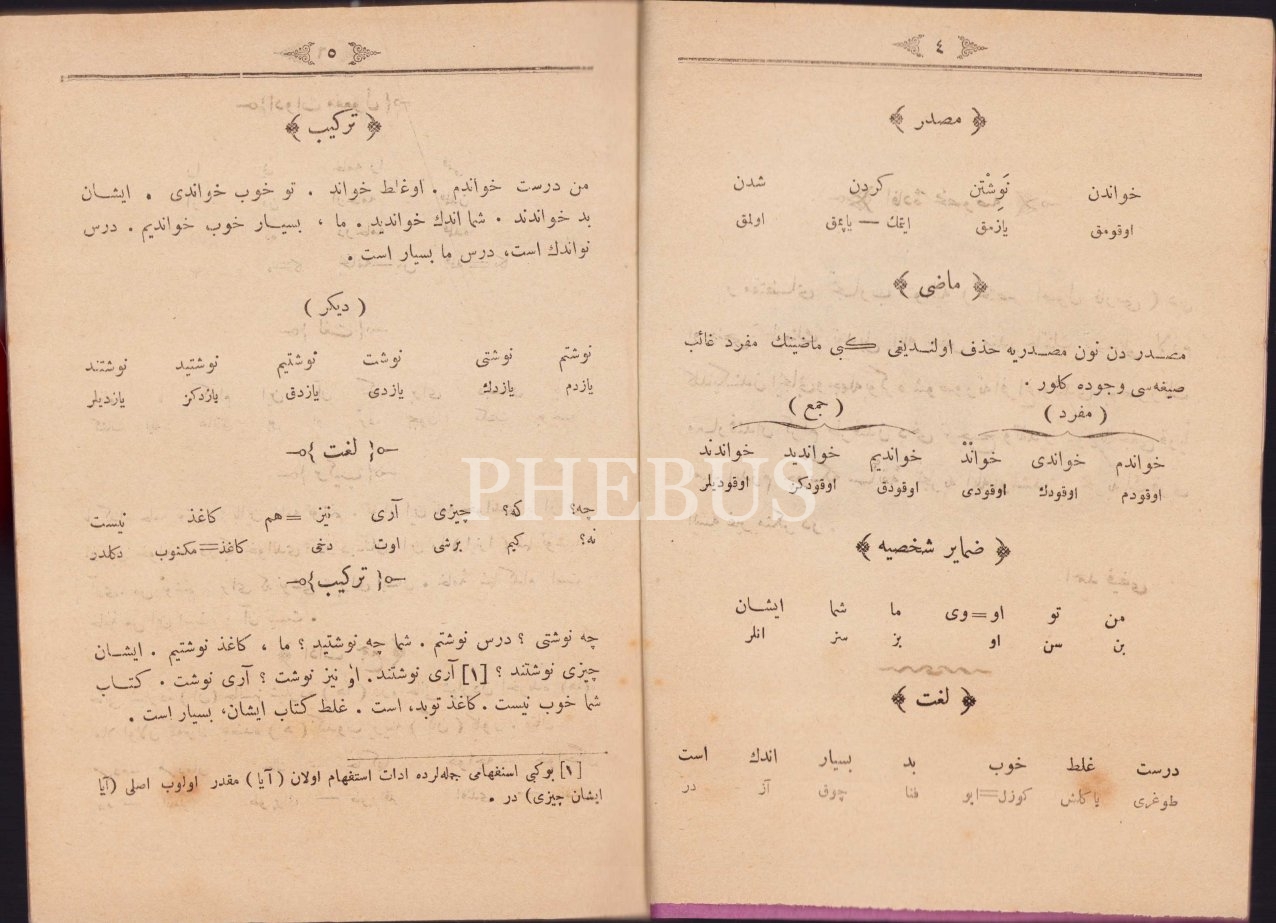 ٤
﴿ مصدر ﴾
خواندن نَوِشْتَن كردن شدن
اوقومق يازمق ايتمك — ياپمق اولمق
﴿ ماضى ﴾
مصدر دن نون مصدريه حذف اولنديغى كبى ماضينك مفرد غائب
صيغه‌سى وجوده كلور .
( مفرد ) ( جمع )
خواندم خواندى خوانْدْ خوانديم خوانديد خواندند
اوقودم اوقودك اوقودى اوقودق اوقودكز اوقوديلر
﴿ ضماير شخصيه ﴾
من تو او=وى ما شما ايشان
بن سن او بز سز انلر
﴿ لغت ﴾
درست غلط خوب بد بسيار اندك است
طوغرى ياكلش كوزل=ايو فنا چوق آز در
٥
﴿ تركيب ﴾
من درست خواندم . اوغلط خواند . تو خوب خواندى . ايشان
بد خواندند . شما اندك خوانديد . ما ، بسيار خوب خوانديم . درس
تواندك است، درس ما بسيار است .
( ديكر )
نوشتم نوشتى نوشت نوشتيم نوشتيد نوشتند
يازدم يازدك يازدى يازدق يازدكز يازديلر
لغت
چه؟ كه؟ چيزى آرى نيز=هم كاغذ نيست
نه؟ كيم برشى اوت دخى كاغذ=مكتوب دكلدر
تركيب
چه نوشتى ؟ درس نوشتم . شما چه نوشتيد ؟ ما ، كاغذ نوشتيم . ايشان
چيزى نوشتند ؟ [١] آرى نوشتند. او نيز نوشت ؟ آرى نوشت . كتاب
شما خوب نيست . كاغذ توبد، است . غلط كتاب ايشان، بسيار است .
[١] بوكبى استفهامى جمله‌لرده ادات استفهام اولان ( آيا ) مقدر اولوب اصلى (آيا
ايشان چيزى) در .
PHEBUS